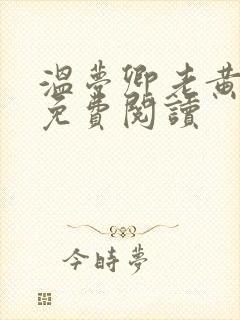 溫夢卿老黃
免費閱讀
今時夢